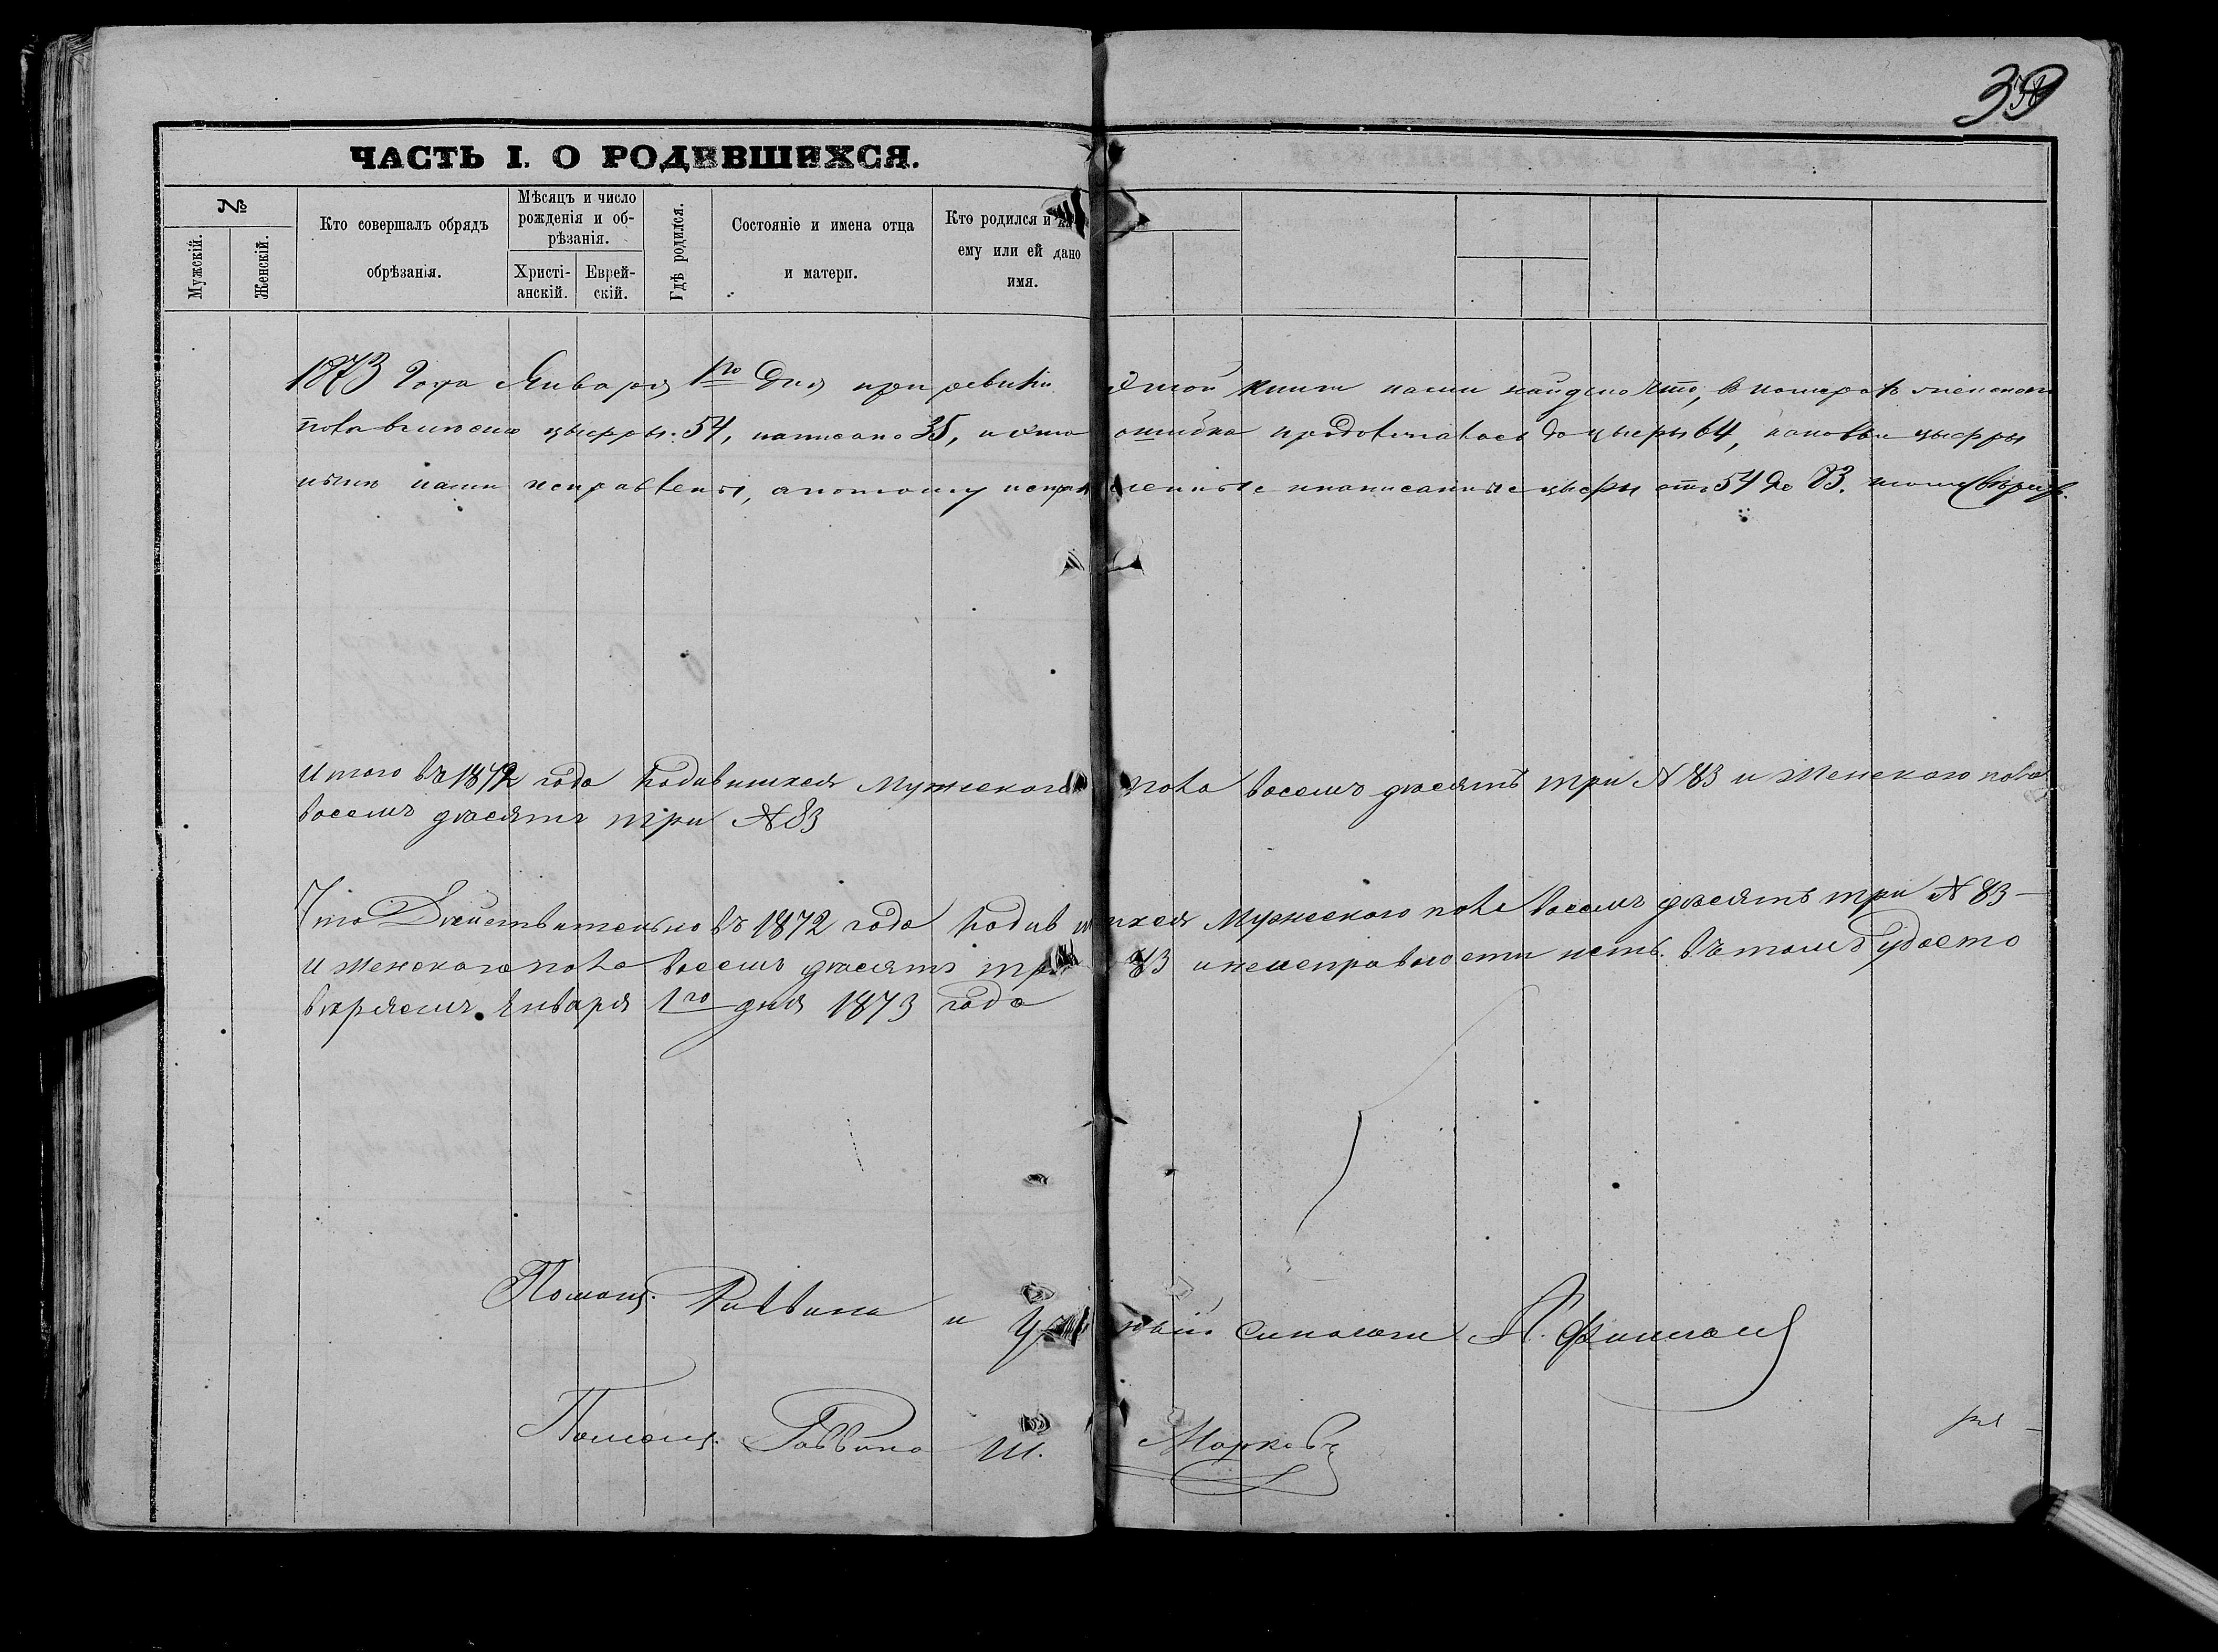 39
ЧАСТЬ I. О РОДИВШИХСЯ.
№
Мужскій.
Женскій.
Кто совершалъ обрядъ
обрѣзанія.
Мѣсяцъ и число
рожденія и об-
рѣзанія.
Христі-
анскій.
Еврей-
скій.
Гдѣ родился.
Состояніе и имена отца
и матери.
Кто родился и
ему или ей дано
имя.
1873 Года Января 1го Дня при ревизіи этой книги нами найдено что, въ номерахъ женскаго
пола вмѣсто цыфры 54, написано 35, и эта ошибка продолжалась до цыфры 64, каковые цыфры
нами исправлены, а потому исправленные и написанные цыфры отъ 54 до 83.
Итого въ 1872 года Родившихся Мужескаго пола восемъ десять три № 83 и Женского пола
восемъ десять три № 83
Что Действительно въ 1872 года Родившихся Мужеского пола восемъ десять три № 83
и женского пола восемъ десять три 83 и неисправности нетъ. въ томъ удосто
веряемъ. Января 1го дня 1873 года
Помощ. Раввина и синагоги
Помощ. Раввина Ш. Марковъ